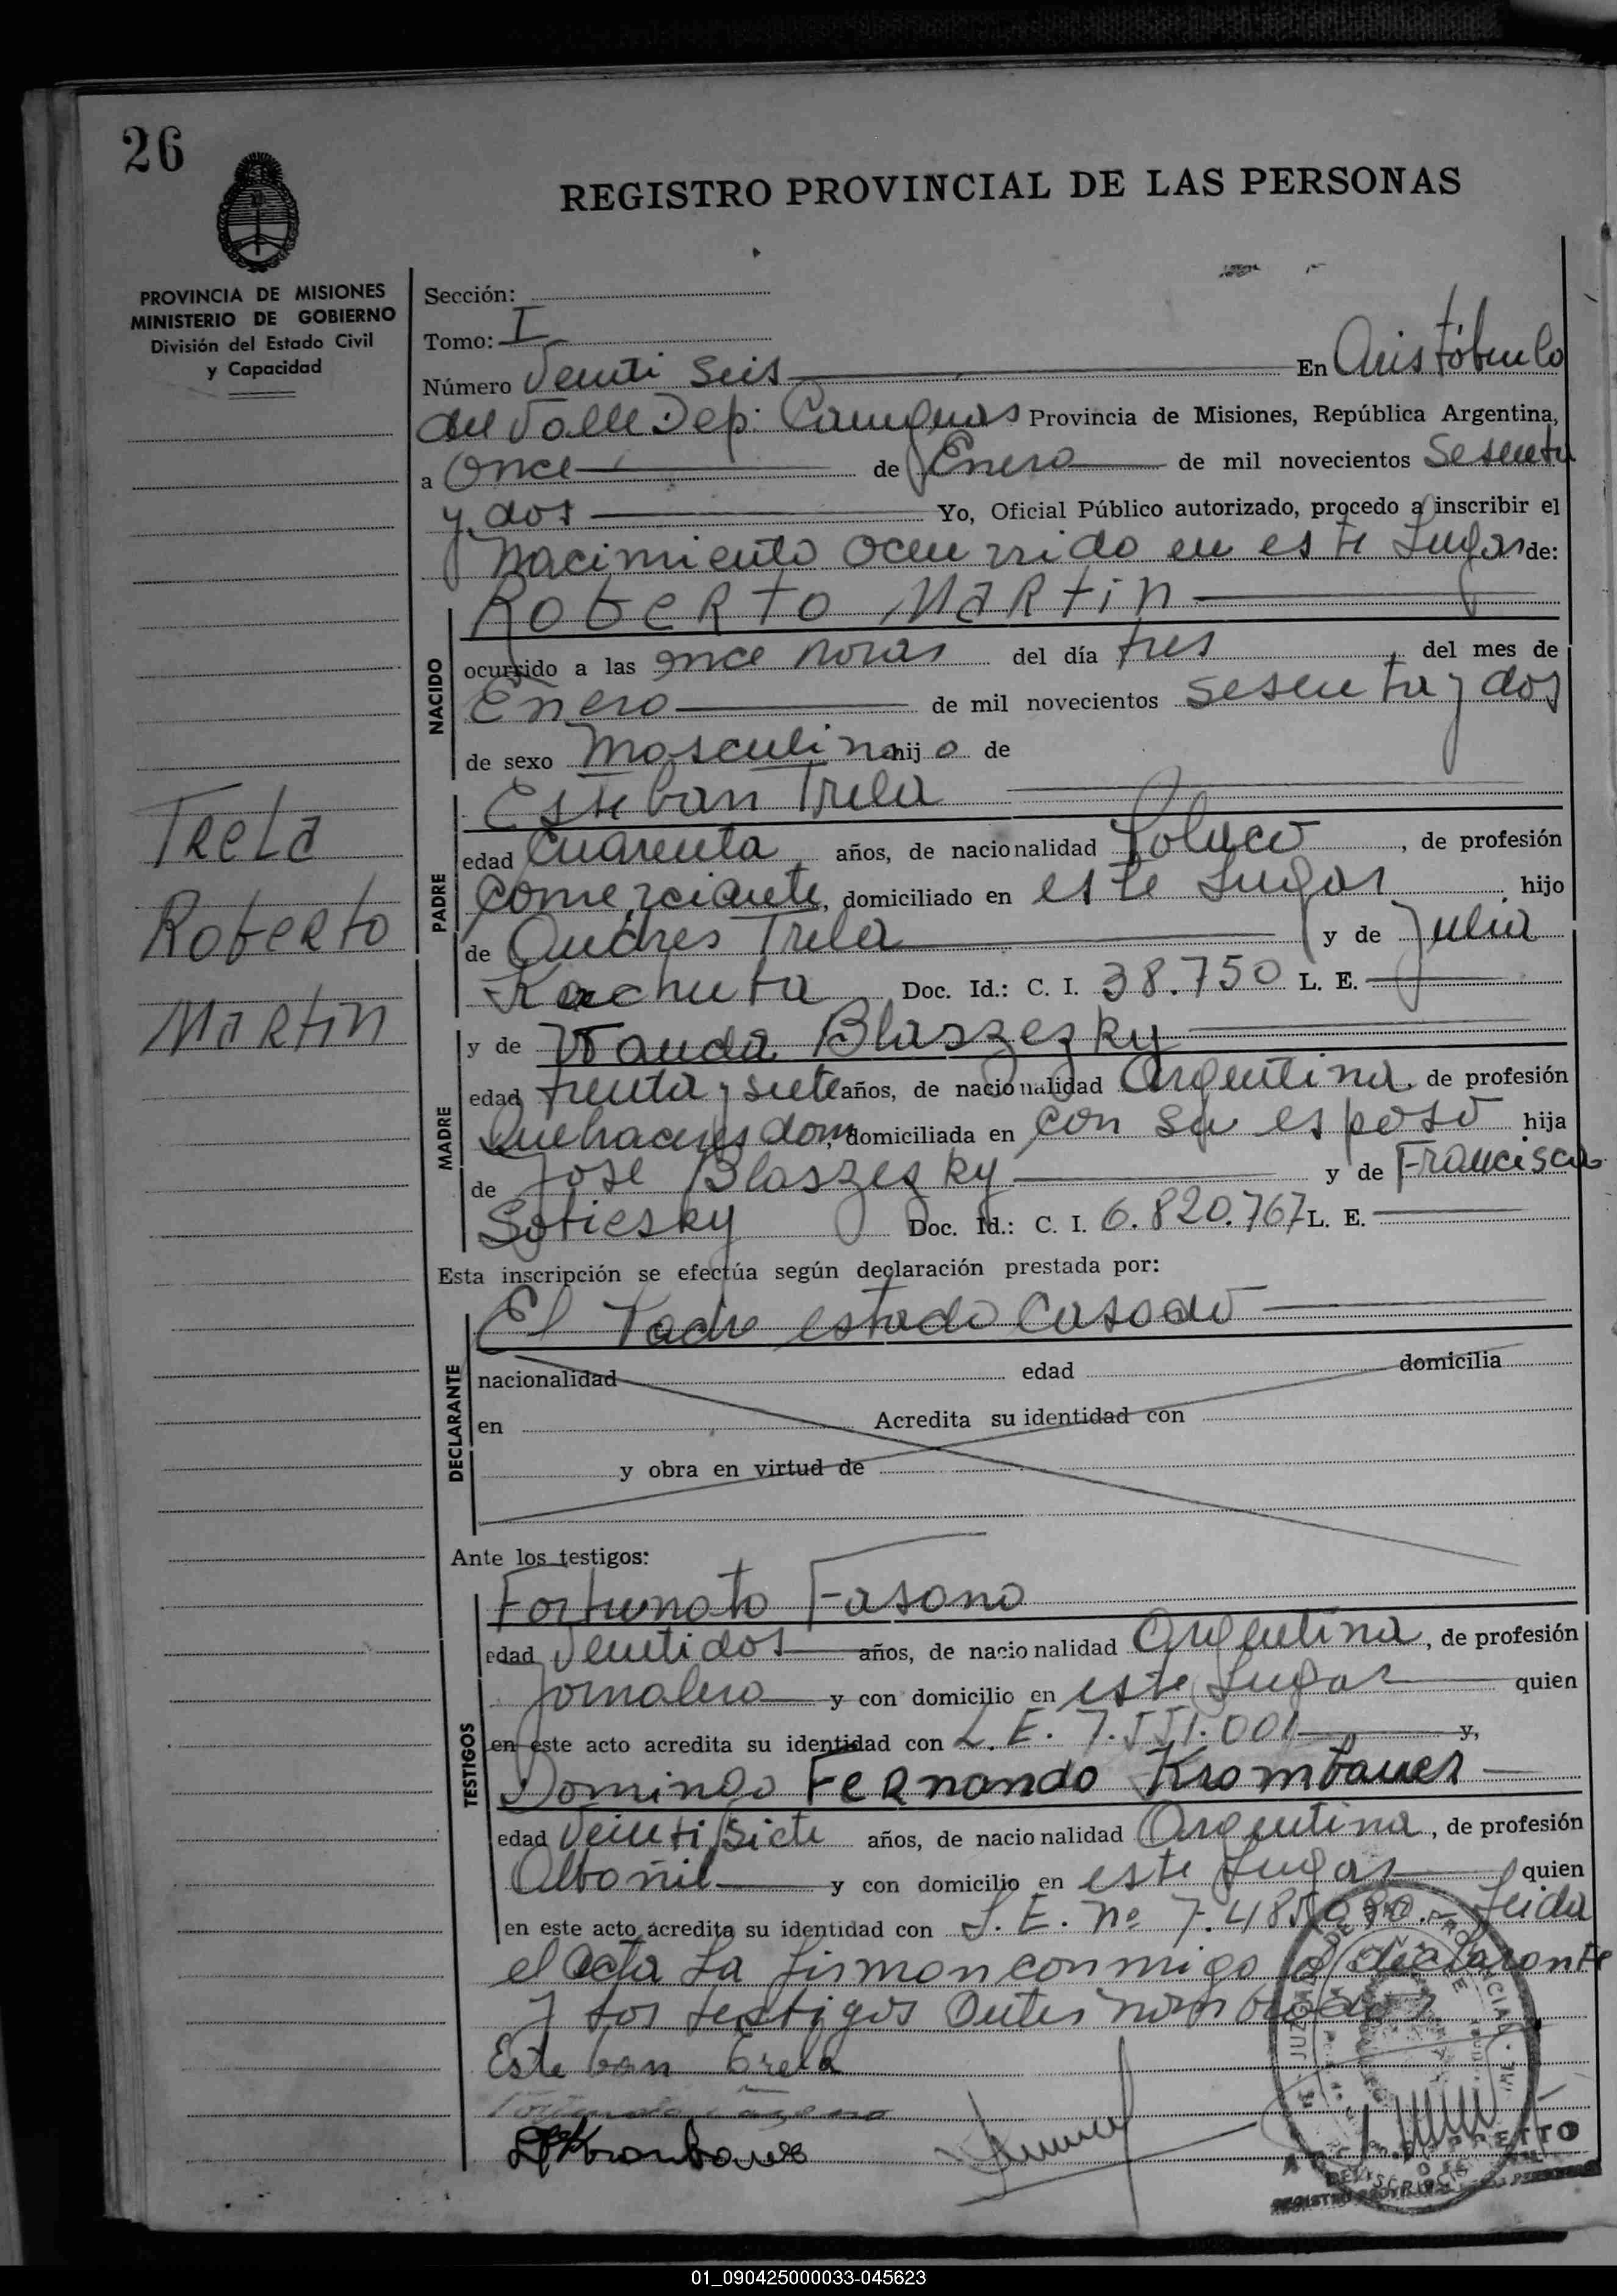 26
REGISTRO PROVINCIAL DE LAS PERSONAS
PROVINCIA DE MISIONES
MINISTERIO DE GOBIERNO
División del Estado Civil
y Capacidad
Trela
Roberto
Martin
Sección:
Tomo: I
Número Veinti Seis En Aristóbulo
del Valle Dep: Cainguas Provincia de Misiones, República Argentina,
a Once de Enero de mil novecientos Sesenta
y dos Yo, Oficial Público autorizado, procedo a inscribir el
Nacimiento ocurrido en este Lugar de:
Roberto Martin
NACIDO
ocurrido a las once horas del día tres, del mes de
Enero de mil novecientos sesenta y dos
de sexo Masculino hijo de
Esteban Trela
PADRE
edad Cuarenta años, de nacionalidad Polaco, de profesión
Comerciante, domiciliado en este Lugar hijo
de Andres Trela y de Julia
Kachuta Doc. Id.: C. I. 38.750 L. E.
y de Wanda Blaszezky
MADRE
edad treinta y siete años, de nacionalidad Argentina, de profesión
Quehaceres dom, domiciliada en con su esposo hija
de Jose Blaszezky y de Francisca
Sobiesky Doc. Id.: C. I. 6.820.767 L. E.
Esta inscripción se efectúa según declaración prestada por:
El Padre estado Casado
DECLARANTE
nacionalidad edad domicilia
en Acredita su identidad con
y obra en virtud de
Ante los testigos:
Fortunato Fasano
TESTIGOS
edad Veintidos años, de nacionalidad Argentina, de profesión
Jornalero y con domicilio en este Lugar quien
en este acto acredita su identidad con L. E. 7.551.001 y,
Domingo Fernando Krombauer
edad Veinti Siete años, de nacionalidad Argentina, de profesión
Albañil y con domicilio en este Lugar quien
en este acto acredita su identidad con L. E. nº 7.485.090.- Leida
el Acta La firman conmigo el declarante
y los testigos Antes nombrados
Esteban Trela
01_090425000033-045623